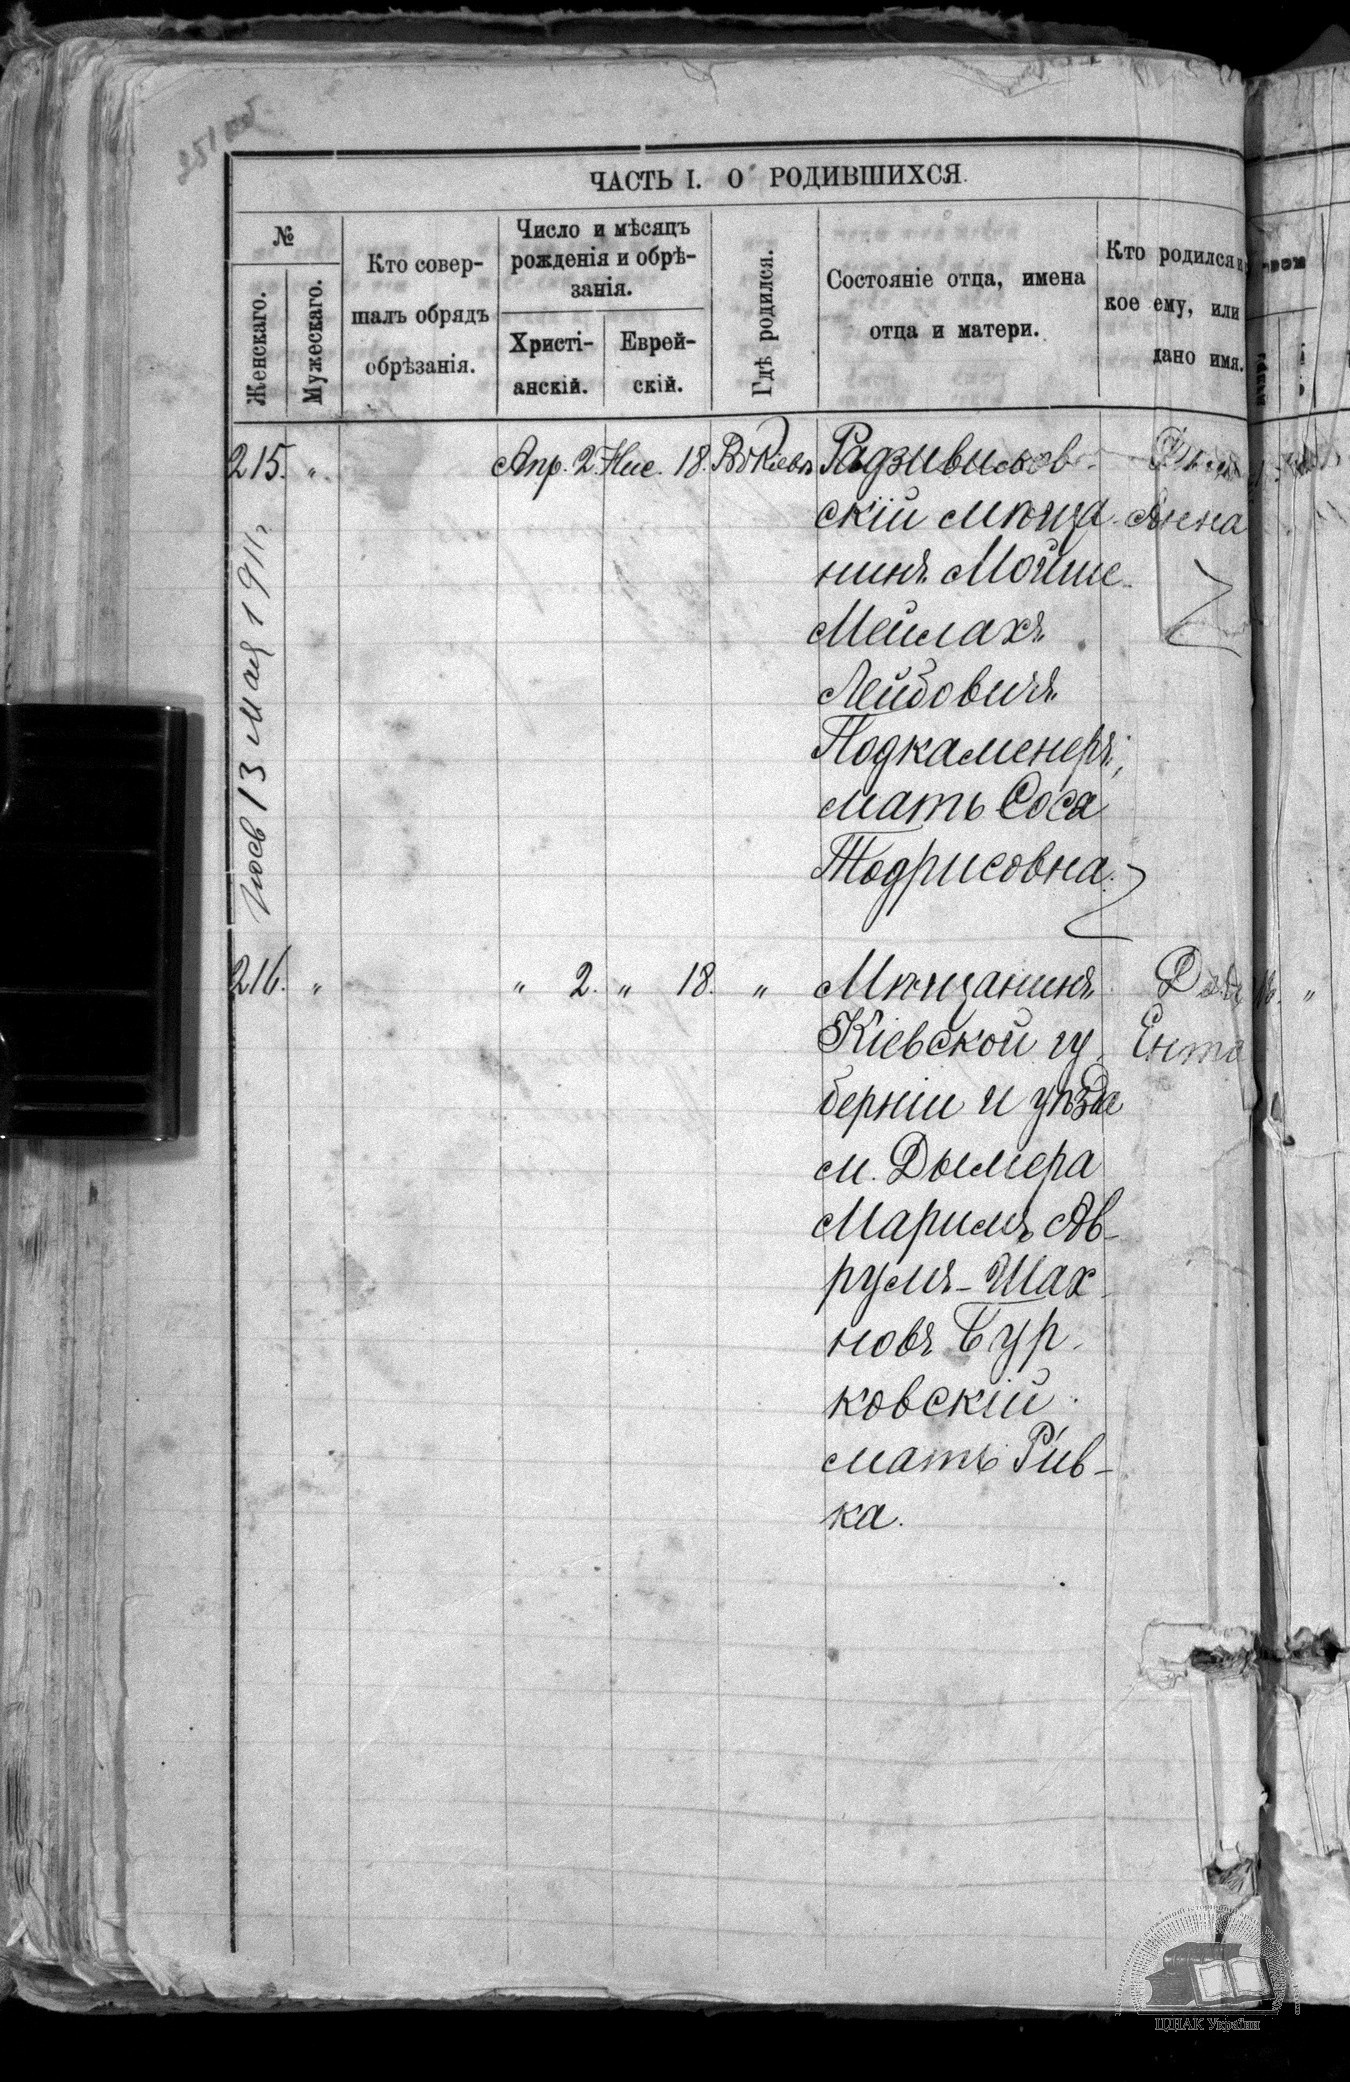 251 об
ЧАСТЬ I. О РОДИВШИХСЯ.
№
Женскаго.
Мужескаго.
Кто совер-
шалъ обрядъ
обрѣзанія.
Число и мѣсяцъ
рожденія и обрѣ-
занія.
Христі-
анскій.
Еврей-
скій.
Гдѣ родился.
Состояніе отца, имена
отца и матери.
Кто родился и
кое ему, или
дано имя.
215. „ Апр. 2. Нис. 18. Въ Кіевѣ Радзивилов-
скій мѣща- Анна
нинъ Мойше-
Мейлахъ
Лейбовичъ
Подкаменеръ,
мать Соса
Тодрисовна.
13 Мая 1911 г.
216. „ „ 2. „ 18. „ Мѣщанинъ
Кіевской гу- Ента
берніи и уѣзда
м. Дымера
Маримъ Ав-
румъ-Шах-
новъ Бур-
ковскій
мать Рив-
ка.
ЦДІАК України